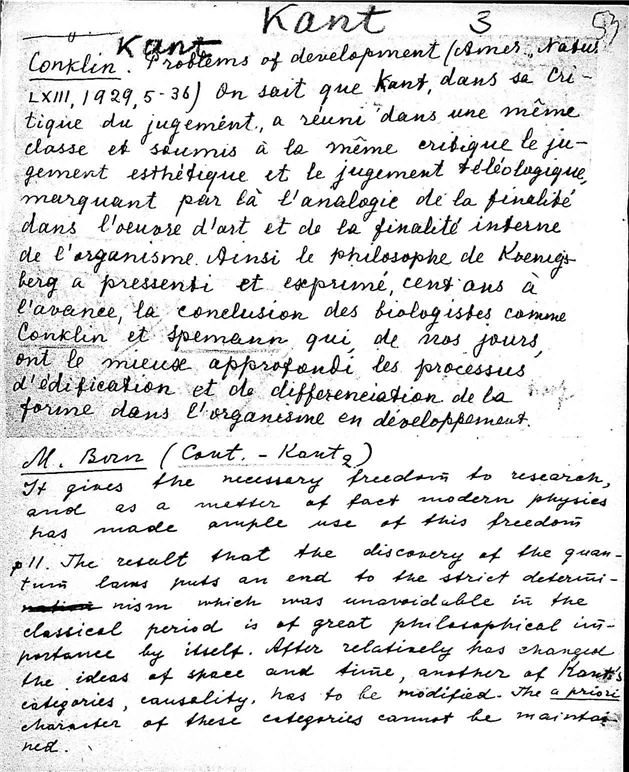 Kant 3 53
Kant
Conklin. Problems of development (Amer. Natur
LXIII, 1929, 5-36) On sait que Kant, dans sa Cri-
tique du jugement, a réuni dans une même
classe et soumis à la même critique le ju-
gement esthétique et le jugement téléologique,
marquant par là l'analogie de la finalité
dans l'oeuvre d'art et de la finalité interne
de l'organisme. Ainsi le philosophe de Koenigs-
berg a pressenti et exprimé, cent ans à
l'avance, la conclusion des biologistes comme
Conklin et Spemann qui, de nos jours,
ont le mieux approfondi les processus
d'édification et de differenciation de la
forme dans l'organisme en développement.
M. Born (Cont. - Kant 2)
It gives the necessary freedom to research,
and as a matter of fact modern physics
has made ample use of this freedom
p 11. The result that the discovery of the quan-
tum laws puts an end to the strict determi-
nism which was unavoidable in the
classical period is of great philosophical im-
portance by itself. After relatively has changed
the ideas of space and time, another of Kant's
categories, causality, has to be modified. The a priori
character of these categories cannot be maintai-
ned.